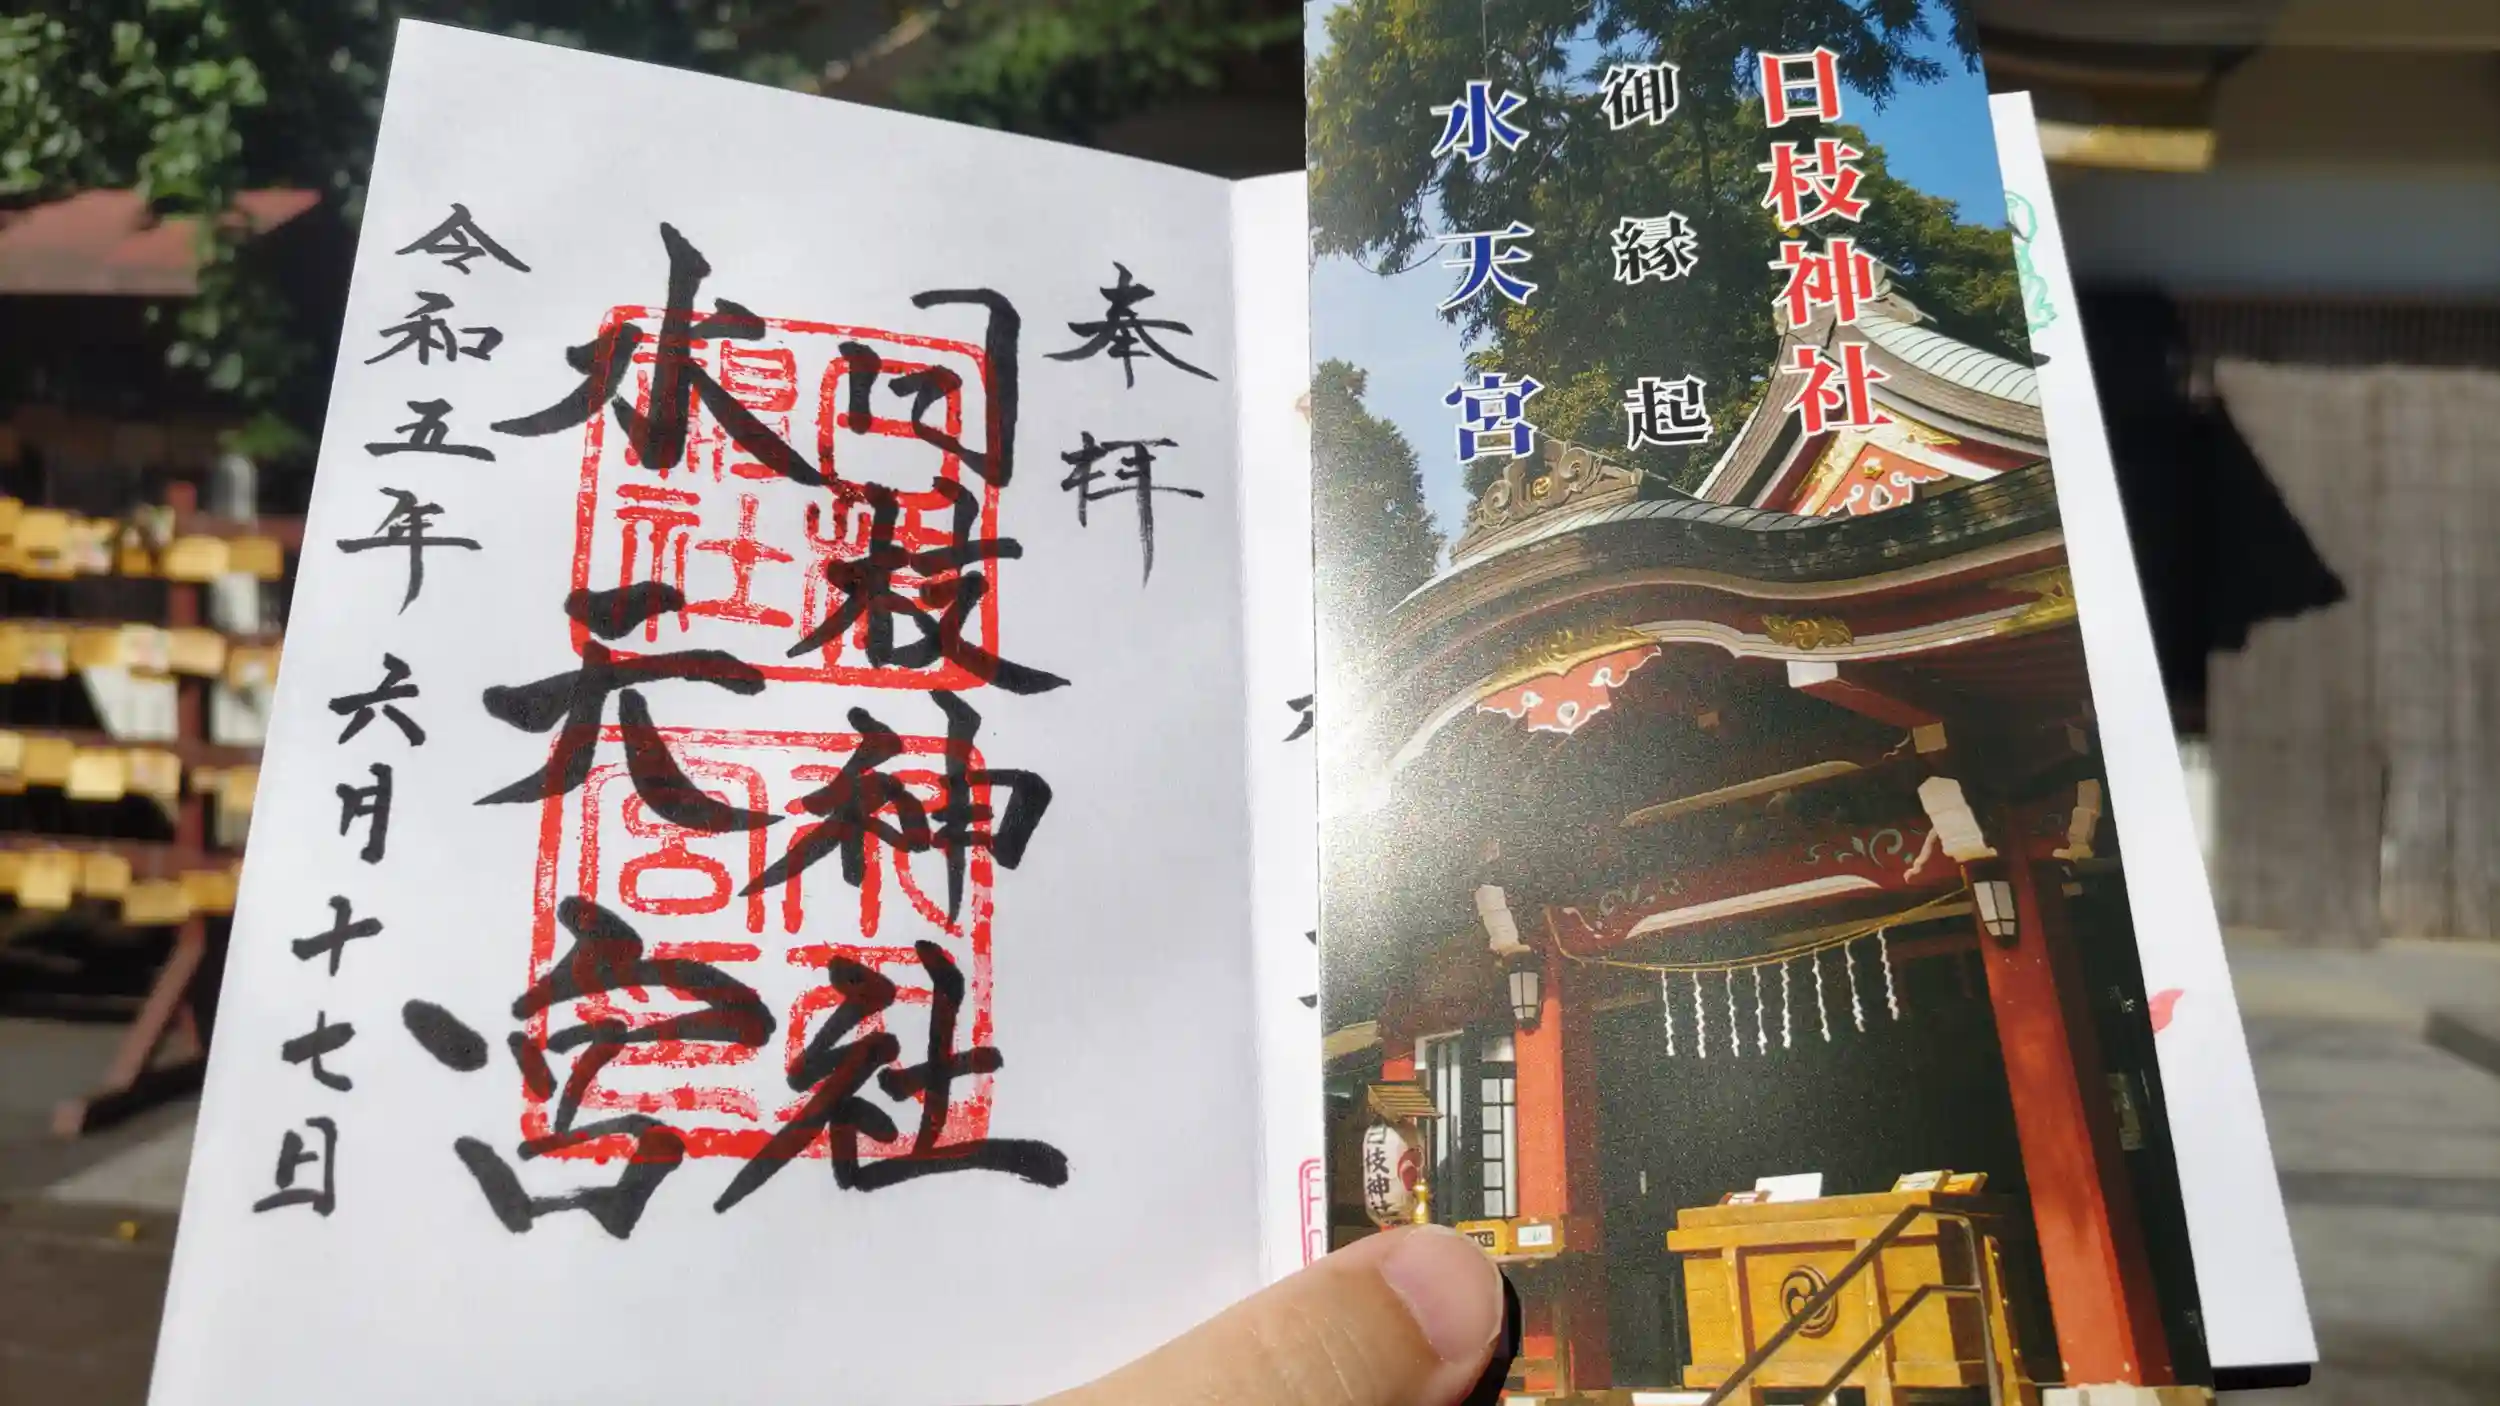 奉拝
日枝神社
水天宮
令和五年六月十七日
日枝神社
御縁起
水天宮
日枝神社